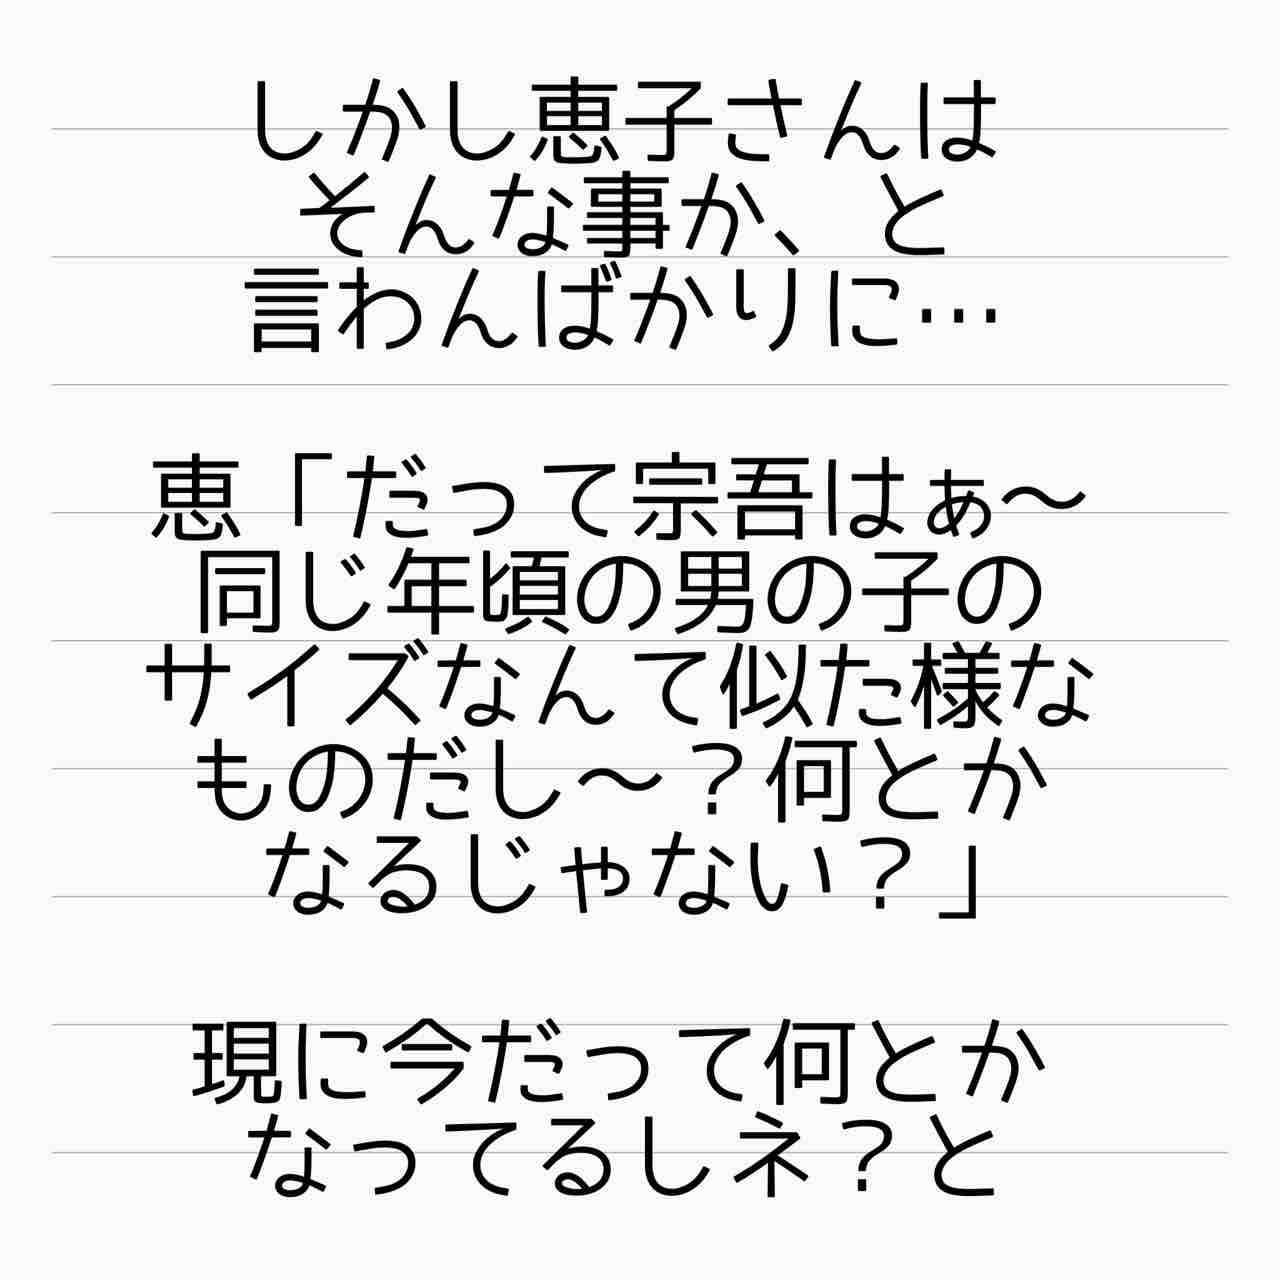 しかし恵子さんは
そんな事か、と
言わんばかりに…
恵「だって宗吾はぁ〜
同じ年頃の男の子の
サイズなんて似た様な
ものだし〜？何とか
なるじゃない？」
現に今だって何とか
なってるしネ？と